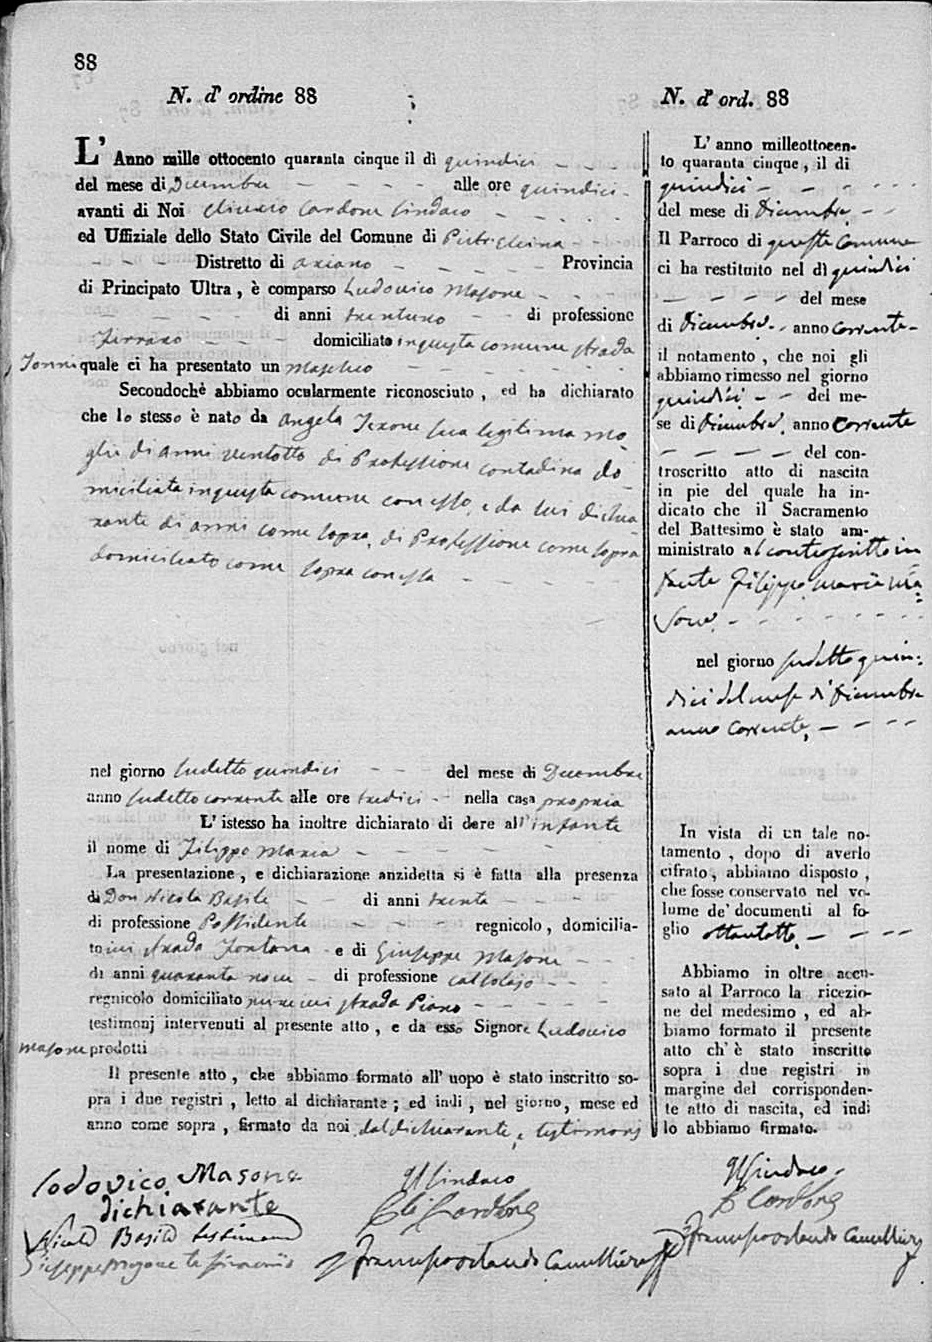 88
N. d' ordine 88
L' Anno mille ottocento quaranta cinque il dì quindici
del mese di Dicembre alle ore quindici
avanti di Noi Cardone Sindaco
ed Uffiziale dello Stato Civile del Comune di Pietrelcina
Distretto di Ariano Provincia
di Principato Ultra, è comparso Ludovico Masone
di anni trentuno di professione
Ferraro domiciliato in questa comune strada
quale ci ha presentato un maschio
Secondochè abbiamo ocularmente riconosciuto, ed ha dichiarato
che lo stesso è nato da Angela Iezone sua legitima mo
glie di anni ventotto di Professione contadina do
miciliata in questa comune con esso, e da lui dichia
rante di anni come sopra, di Professione come sopra
domiciliato come sopra con essa
nel giorno sudetto quindici del mese di Dicembre
anno sudetto corrente alle ore tredici nella casa propria
L' istesso ha inoltre dichiarato di dare all'infante
il nome di Filippo Maria
La presentazione, e dichiarazione anzidetta si è fatta alla presenza
di Don Nicola Basile di anni trenta
di professione Possidente regnicolo, domicilia-
to ivi strada Fontana e di Giuseppe Masone
di anni quaranta nove di professione calzolajo
regnicolo domiciliato pure ivi strada Piano
testimonj intervenuti al presente atto, e da esso Signore Ludovico
Masone prodotti
Il presente atto, che abbiamo formato all' uopo è stato inscritto so-
pra i due registri, letto al dichiarante; ed indi, nel giorno, mese ed
anno come sopra, firmato da noi, dal dichiarante, e testimonj
Lodovico Masone
dichiarante
Nicola Basile testimone
Giuseppe Masone testimonio
Il Sindaco
Cardone
N. d' ord. 88
L' anno milleottocen-
to quaranta cinque, il di
quindici
del mese di Dicembre
Il Parroco di questa Comune
ci ha restituito nel dì quindici
del mese
di Dicembre anno corrente
il notamento, che noi gli
abbiamo rimesso nel giorno
quindici del me-
se di Dicembre anno corrente
del con-
troscritto atto di nascita
in pie del quale ha in-
dicato che il Sacramento
del Battesimo è stato am-
ministrato al controscritto in
fante Filippo Maria Ma
sone
nel giorno sudetto quin-
dici del mese di Dicembre
anno corrente,
In vista di un tale no-
tamento, dopo di averlo
cifrato, abbiamo disposto,
che fosse conservato nel vo-
lume de' documenti al fo-
glio ottantotto
Abbiamo in oltre accu-
sato al Parroco la ricezio-
ne del medesimo, ed ab-
biamo formato il presente
atto ch' è stato inscritto
sopra i due registri in
margine del corrisponden-
te atto di nascita, ed indi
lo abbiamo firmato.
Il Sindaco
Cardone